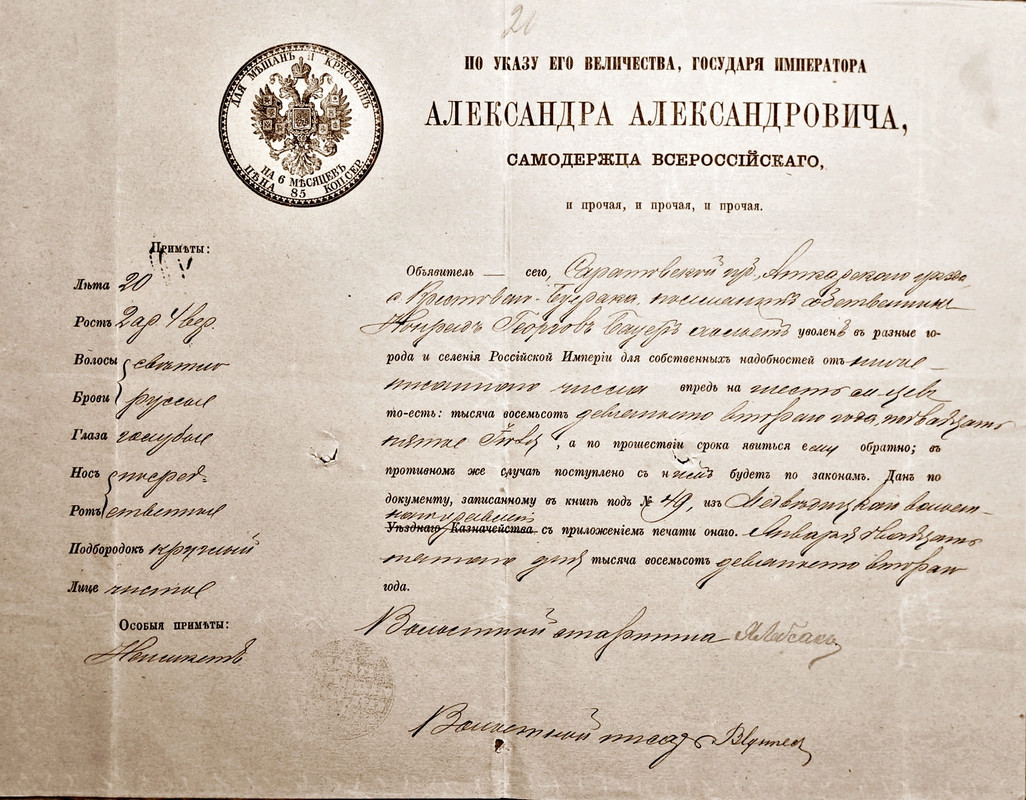 20
ДЛЯ МѢЩАНЪ И КРЕСТЬЯНЪ
НА 6 МѢСЯЦЕВЪ
ЦѢНА 85 КОП.СЕР.
ПО УКАЗУ ЕГО ВЕЛИЧЕСТВА, ГОСУДАРЯ ИМПЕРАТОРА
АЛЕКСАНДРА АЛЕКСАНДРОВИЧА,
САМОДЕРЖЦА ВСЕРОССІЙСКАГО,
и прочая, и прочая, и прочая.
Примѣты:
Лѣта 20
Ростъ 2 ар 4 вер.
Волосы свѣтло
Брови русые
Глаза голубые
Носъ посред-
Ротъ ственные
Подбородокъ круглый
Лице чистое
Особыя примѣты:
Неимѣетъ
Объявитель — сего, Саратовской губ, Аткарскаго уѣзда
с. Крестовый-Буеракъ, поселянинъ собственникъ
Конрадъ Георговъ Бауеръ уволенъ въ разные го-
рода и селенія Россійской Имперіи для собственныхъ надобностей отъ ниже-
писаннаго числа впредь на шесть м-цевъ
то-есть: тысяча восемьсотъ девяносто втораго года, по двадцать
пятое Іюля, а по прошествіи срока явиться ему обратно; въ
противномъ же случаѣ поступлено съ нимъ будетъ по законамъ. Данъ по
документу, записанному въ книгѣ подъ № 49, изъ Медвѣдицкаго волост-
наго правленія
Уѣзднаго Казначейства съ приложеніемъ печати онаго. Января двадцать
пятаго дня тысяча восемьсотъ девяносто втораго
года.
Волостной старшина
Волостной писарь